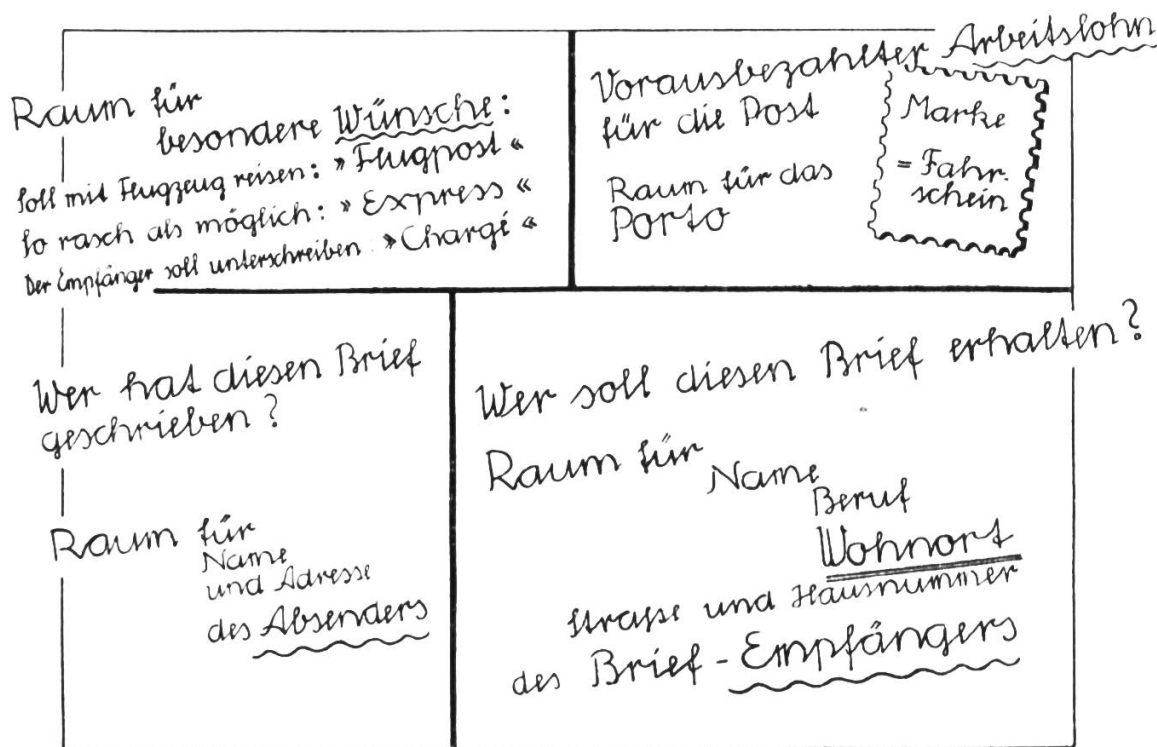 Raum für
besondere Wünsche:
Soll mit Flugzeug reisen: »Flugpost«
So rasch als möglich: »Express«
Der Empfänger soll unterschreiben. »Chargé«
Vorausbezahlter Arbeitslohn
für die Post
Raum für das
Porto
Marke
= Fahr-
schein
Wer hat diesen Brief
geschrieben?
Raum für
Name
und Adresse
des Absenders
Wer soll diesen Brief erhalten?
Raum für Name
Beruf
Wohnort
Straße und Hausnummer
des Brief-Empfängers